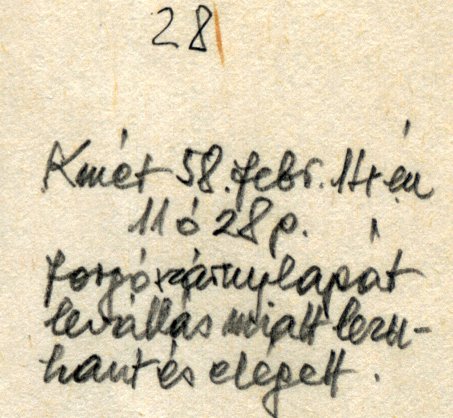 28
Kmét 58. febr. 14-én
11 ó 28 p.
forgószárnylapát
leválás miatt lezu-
hant és elégett.